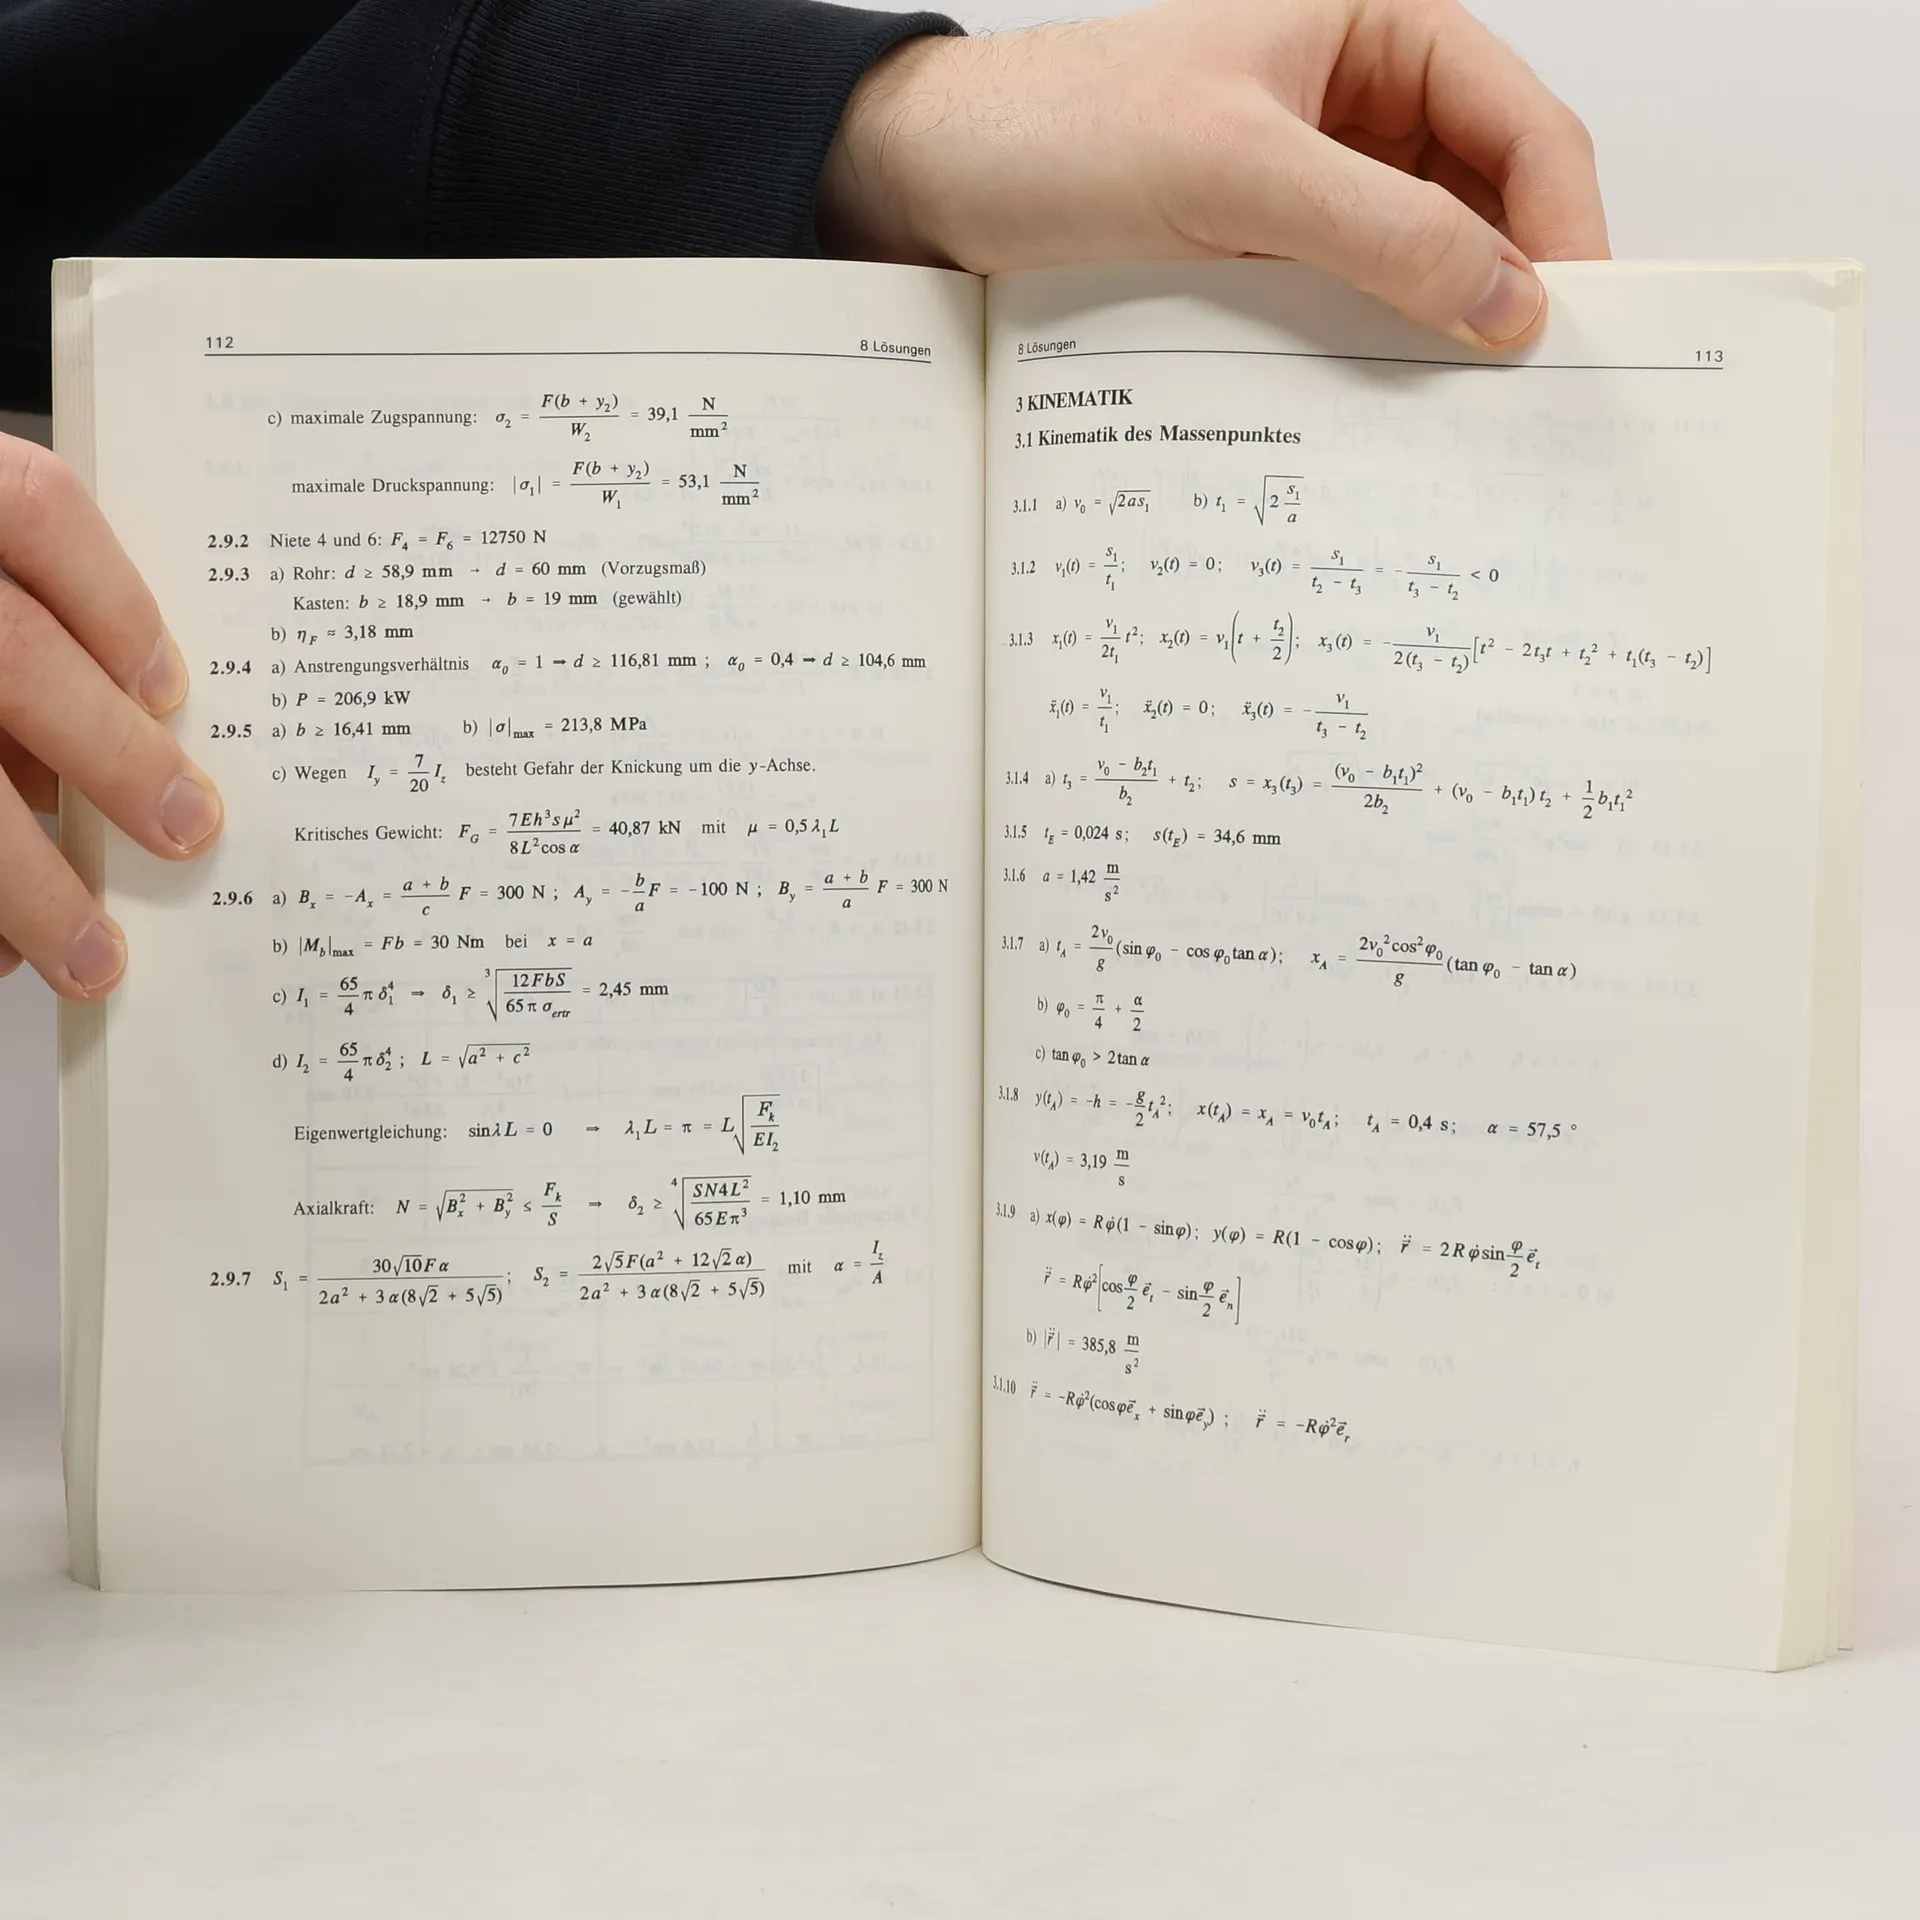 112
8 Lösungen
c) maximale Zugspannung: σ₂ = F(b + y₂)/W₂ = 39,1 N/mm²
maximale Druckspannung: |σ₁| = F(b + y₂)/W₁ = 53,1 N/mm²
2.9.2 Niete 4 und 6: F₄ = F₆ = 12750 N
2.9.3 a) Rohr: d ≥ 58,9 mm → d = 60 mm (Vorzugsmaß)
Kasten: b ≥ 18,9 mm → b = 19 mm (gewählt)
b) η_F ≈ 3,18 mm
2.9.4 a) Anstrengungsverhältnis α₀ = 1 → d ≥ 116,81 mm ; α₀ = 0,4 → d ≥ 104,6 mm
b) P = 206,9 kW
2.9.5 a) b ≥ 16,41 mm b) |σ|_max = 213,8 MPa
c) Wegen I_y = 7/20 I_z besteht Gefahr der Knickung um die y-Achse.
Kritisches Gewicht: F_G = 7Eh³sμ²/(8L²cos α) = 40,87 kN mit μ = 0,5λ₁L
2.9.6 a) B_x = -A_x = (a + b)/c F = 300 N ; A_y = -b/a F = -100 N ; B_y = (a + b)/a F = 300 N
b) |M_b|_max = Fb = 30 Nm bei x = a
c) I₁ = 65/4 π δ₁⁴ → δ₁ ≥ ³√(12FbS/(65 π σ_ertr)) = 2,45 mm
d) I₂ = 65/4 π δ₂⁴ ; L = √(a² + c²)
Eigenwertgleichung: sinλL = 0 → λ₁L = π = L√(F_k/EI₂)
Axialkraft: N = √(B_x² + B_y²) ≤ F_k/S → δ₂ ≥ ⁴√(SN4L²/(65Eπ³)) = 1,10 mm
2.9.7 S₁ = 30√10Fα/(2a² + 3α(8√2 + 5√5)) ; S₂ = 2√5F(a² + 12√2α)/(2a² + 3α(8√2 + 5√5)) mit α = I_z/A
8 Lösungen
113
3 KINEMATIK
3.1 Kinematik des Massenpunktes
3.1.1 a) v₀ = √(2as₁) b) t₁ = √(2 s₁/a)
3.1.2 v₁(t) = s₁/t₁; v₂(t) = 0; v₃(t) = s₁/(t₂ - t₃) = -s₁/(t₃ - t₂) < 0
3.1.3 x₁(t) = v₁/(2t₁) t²; x₂(t) = v₁(t + t₂/2); x₃(t) = -v₁/(2(t₃ - t₂))[t² - 2t₃t + t₂² + t₁(t₃ - t₂)]
ẍ₁(t) = v₁/t₁; ẍ₂(t) = 0; ẍ₃(t) = -v₁/(t₃ - t₂)
3.1.4 a) t₃ = (v₀ - b₂t₁)/b₂ + t₂; s = x₃(t₃) = (v₀ - b₁t₁)²/(2b₂) + (v₀ - b₁t₁)t₂ + 1/2 b₁t₁²
3.1.5 t_E = 0,024 s; s(t_E) = 34,6 mm
3.1.6 a = 1,42 m/s²
3.1.7 a) t_A = 2v₀/g (sin φ₀ - cos φ₀ tan α); x_A = 2v₀²cos²φ₀/g (tan φ₀ - tan α)
b) φ₀ = π/4 + α/2
c) tan φ₀ > 2 tan α
3.1.8 y(t_A) = -h = -g/2 t_A²; x(t_A) = x_A = v₀t_A; t_A = 0,4 s; α = 57,5 °
v(t_A) = 3,19 m/s
3.1.9 a) x(φ) = Rφ̇(1 - sinφ); y(φ) = R(1 - cosφ); r⃗̈ = 2Rφ̇ sin φ/2 e⃗_t
r⃗̈ = Rφ̇²[cos φ/2 e⃗_t - sin φ/2 e⃗_n]
b) |r⃗̈| = 385,8 m/s²
3.1.10 r⃗̈ = -Rφ̇²(cosφe⃗_x + sinφe⃗_y) ; r⃗̈ = -Rφ̇²e⃗_r